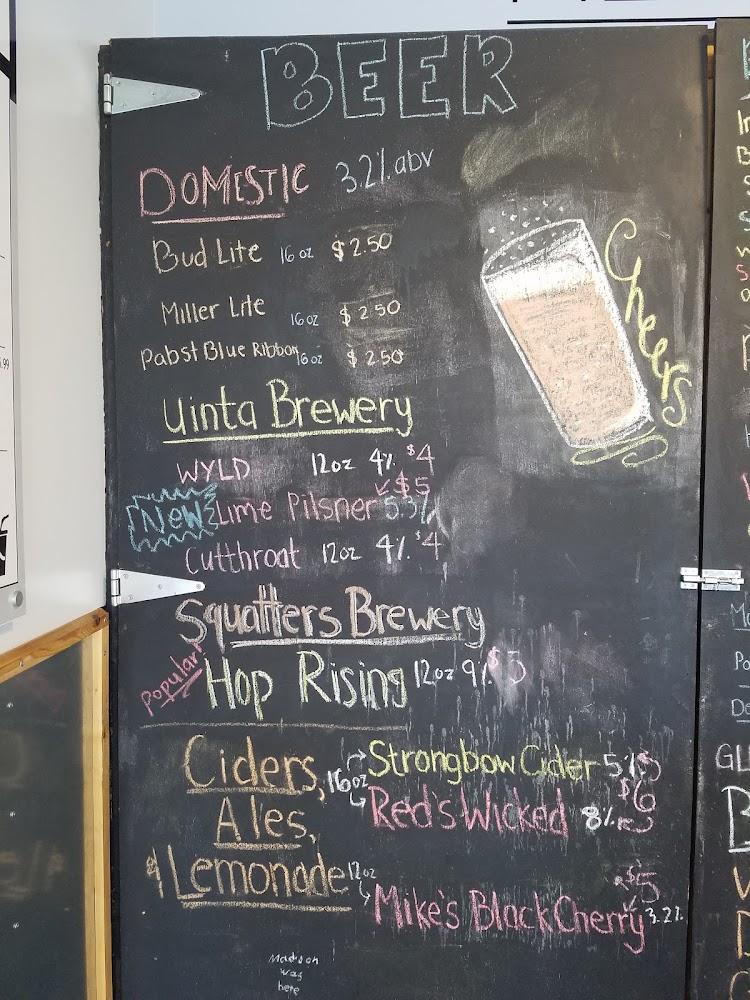 BEER
DOMESTIC 3.2% abv
Bud Lite 16 oz $2.50
Miller Lite 16 oz $2.50
Pabst Blue Ribbon 16 oz $2.50
Cheers
Uinta Brewery
WYLD 12oz 4% $4
$5
New Lime Pilsner 5.3%
Cutthroat 12oz 4% $4
Squatters Brewery
popular Hop Rising 12oz 9% $5
Ciders, 16oz Strongbow Cider 5%
$6
Ales, Red's Wicked 8%
& Lemonade 12oz
$5
Mike's Black Cherry 3.2%
Madison was here